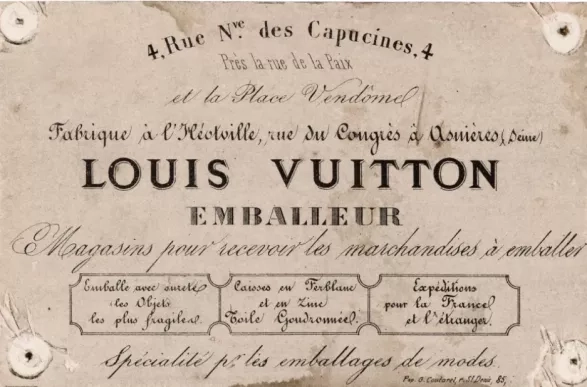 4, Rue Nve. des Capucines, 4
Près la rue de la Paix
et la Place Vendôme
Fabrique à l'Héotville, rue du Congrès à Asnières (Seine)
LOUIS VUITTON
EMBALLEUR
Magasins pour recevoir les marchandises à emballer
Emballe avec sureté
les Objets
les plus fragiles.
Caisses en Ferblanc
et en Zinc
Toile Goudronnée.
Expéditions
pour la France
et l'étranger.
Spécialité pr. les emballages de modes.
Pap. r. St Denis, 85.